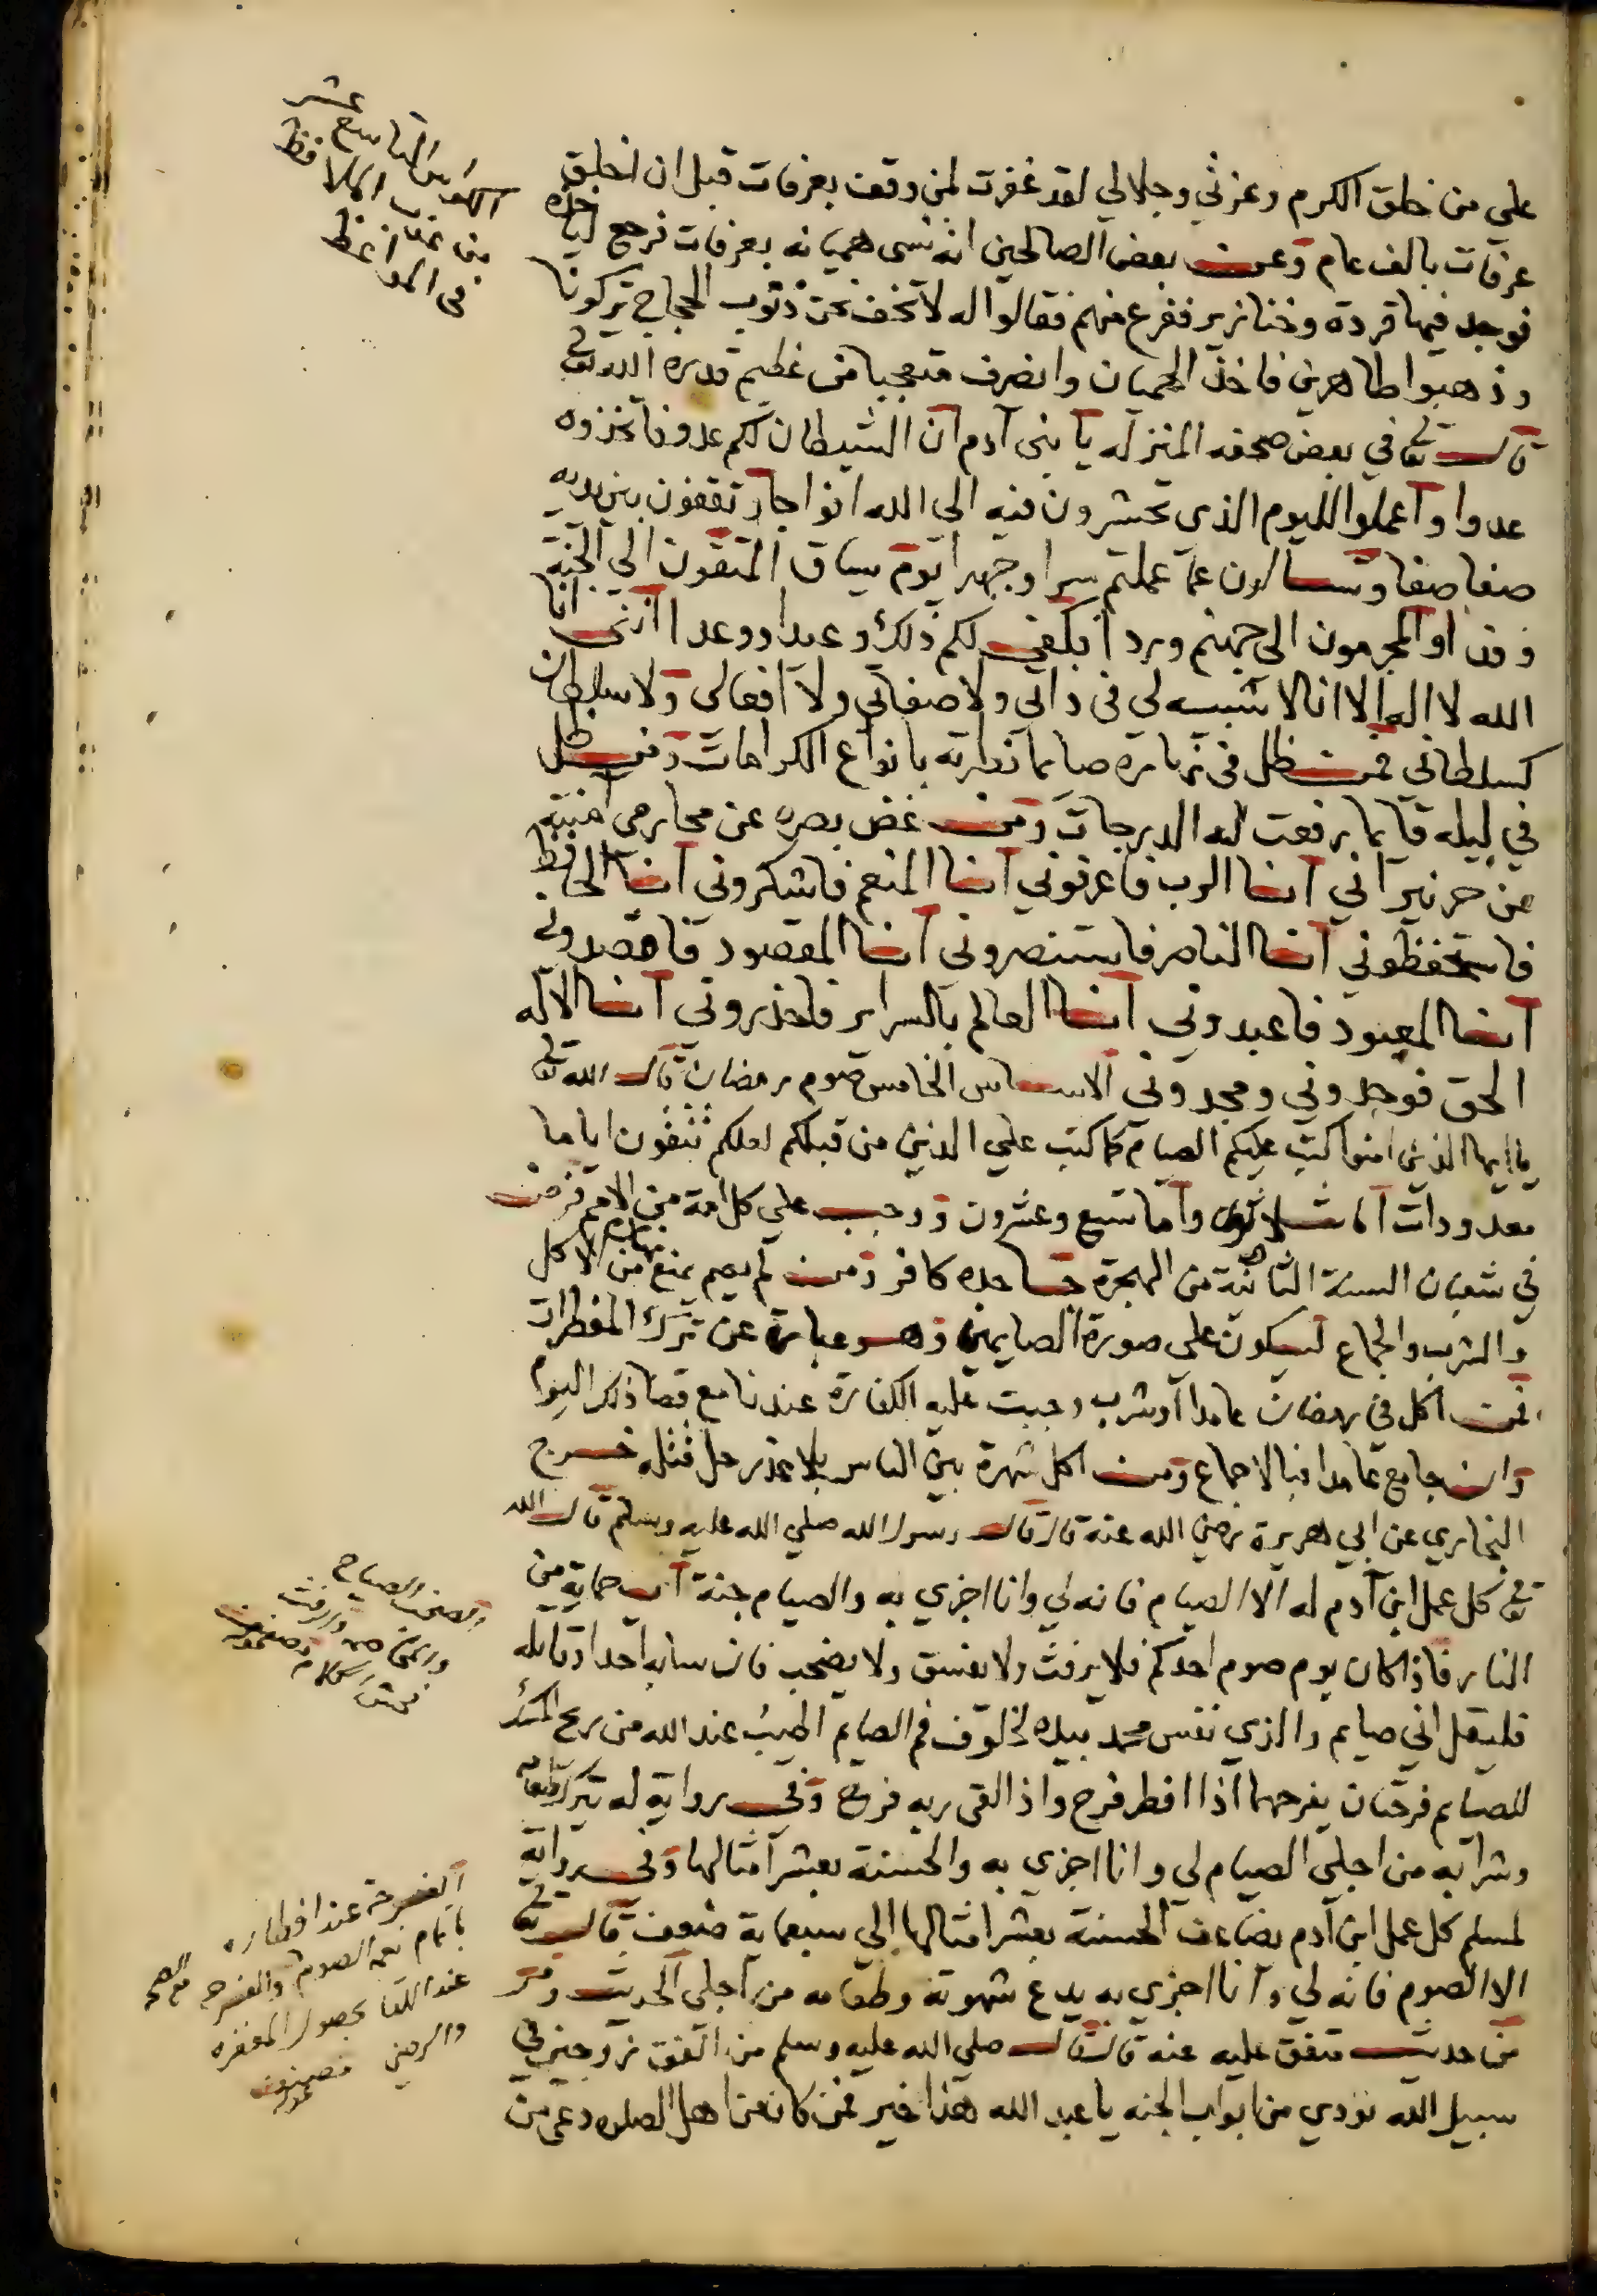 على من خلق الكرم وعزتي وجلالي لقد غفرت لمن وقف بعرفات قبل ان اخلق
عرفات بالف عام وعن بعض الصالحين انه نسى هميانه بعرفات فرجع لياخذه
فوجد فيها قردة وخنازير ففزع منهم فقالوا له لا تخف نحن ذنوب الحجاج تركونا
وذهبوا طاهرين فاخذ الهميان وانصرف متعجبا من عظيم قدرة الله تعالى
قال تعالى في بعض صحفه المنزله يا بنى آدم ان الشيطان لكم عدو فاتخذوه
عدوا واعملوا لليوم الذي تحشرون فيه الى الله افواجا وتقفون بين يديه
صفا صفا وتسالون عما عملتم سرا وجهرا يوم يساق المتقون الي الجنة
وفدا والمجرمون الى جهنم وردا ايكفى لكم ذلك وعيدا ووعدا اننى انا
الله لا اله الا انا لا شبيه لي فى ذاتي ولا صفاتي ولا افعالى ولا سلطان
كسلطاني فمن ظل فى نهاره صايما فطرته بانواع الكرامات ومن ظل
في ليله قايما رفعت له الدرجات ومن غض بصره عن محارمى امنته
من حر نيراني انا الرب فاعرفوني انا المنعم فاشكروني انا الحافظ
فاستحفظوني انا الناصر فاستنصروني انا المقصود فاقصدوني
انا المعبود فاعبدوني انا العالم بالسراير فاحذروني انا الاله
الحق فوحدوني ومجدوني الاساس الخامس صوم رمضان قال الله تعالى
يا ايها الذين امنوا كتب عليكم الصيام كما كتب علي الذين من قبلكم لعلكم تتقون اياما
معدودات اما ثلاثون واما تسع وعشرون ووجب علي كل امة من الامم فرض
في شعبان السنة الثانية من الهجرة جاحده كافر ومن لم يصم يمنع من الاكل
نهارا
والشرب والجماع ليكون على صورة الصايمين وهو عبارة عن ترك المفطرات
فمن اكل فى رمضان عامدا او شرب وجبت عليه الكفارة عندنا مع قضا ذلك اليوم
وان جامع عامدا فبالاجماع ومن اكل شهرة بين الناس بلا عذر حل قتله خرج
البخاري عن ابي هريرة رضي الله عنه قال قال رسول الله صلي الله عليه وسلم قال الله
تعالى كل عمل ابن آدم له الا الصيام فانه لي وانا اجزي به والصيام جنة اى حماية من
النار فاذا كان يوم صوم احدكم فلا يرفث ولا يفسق ولا يصخب فان سابه احد او قاتله
فليقل اني صايم والذي نفس محمد بيده لخلوف فم الصايم اطيب عند الله من ريح المسك
للصايم فرحتان يفرحهما اذا افطر فرح واذا لقى ربه فرح وفي رواية له يترك طعامه
وشرابه من اجلي الصيام لي وانا اجزي به والحسنة بعشر امثالها وفي رواية
لمسلم كل عمل ابن آدم يضاعف الحسنة بعشر امثالها الي سبعماية ضعف قال تعالى
الا الصوم فانه لي وانا اجزي به يدع شهوته وطعامه من اجلى الحديث و
من حديث متفق عليه عنه قال قال صلي الله عليه وسلم من انفق زوجين في
سبيل الله نودي من ابواب الجنه يا عبد الله هذا خير فمن كان من اهل الصلوه دعى من
التاسع عشر
من
فى المواعظ
والصخب الصياح
والرفث
فحش الكلام
الفرحة عند افطاره
باتمام نعمة الصوم والفرحه
عند اللقا بحصول المغفره
والرضى